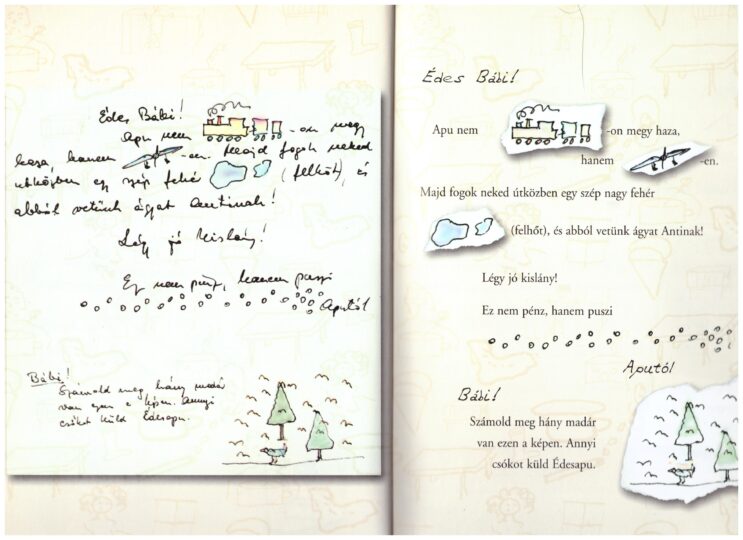 Édes Bábi!
Apu nem -on megy
haza, hanem -en. Majd fogok neked
útközben egy szép fehér (felhőt), és
abból vetünk ágyat Antinak!
Légy jó kislány!
Ez nem pénz, hanem puszi
Aputól
Bábi!
Számold meg hány madár
van ezen a képen. Annyi
csókot küld Édesapu.
Édes Bábi!
Apu nem -on megy haza,
hanem -en.
Majd fogok neked útközben egy szép nagy fehér
(felhőt), és abból vetünk ágyat Antinak!
Légy jó kislány!
Ez nem pénz, hanem puszi
Aputól
Bábi!
Számold meg hány madár
van ezen a képen. Annyi
csókot küld Édesapu.